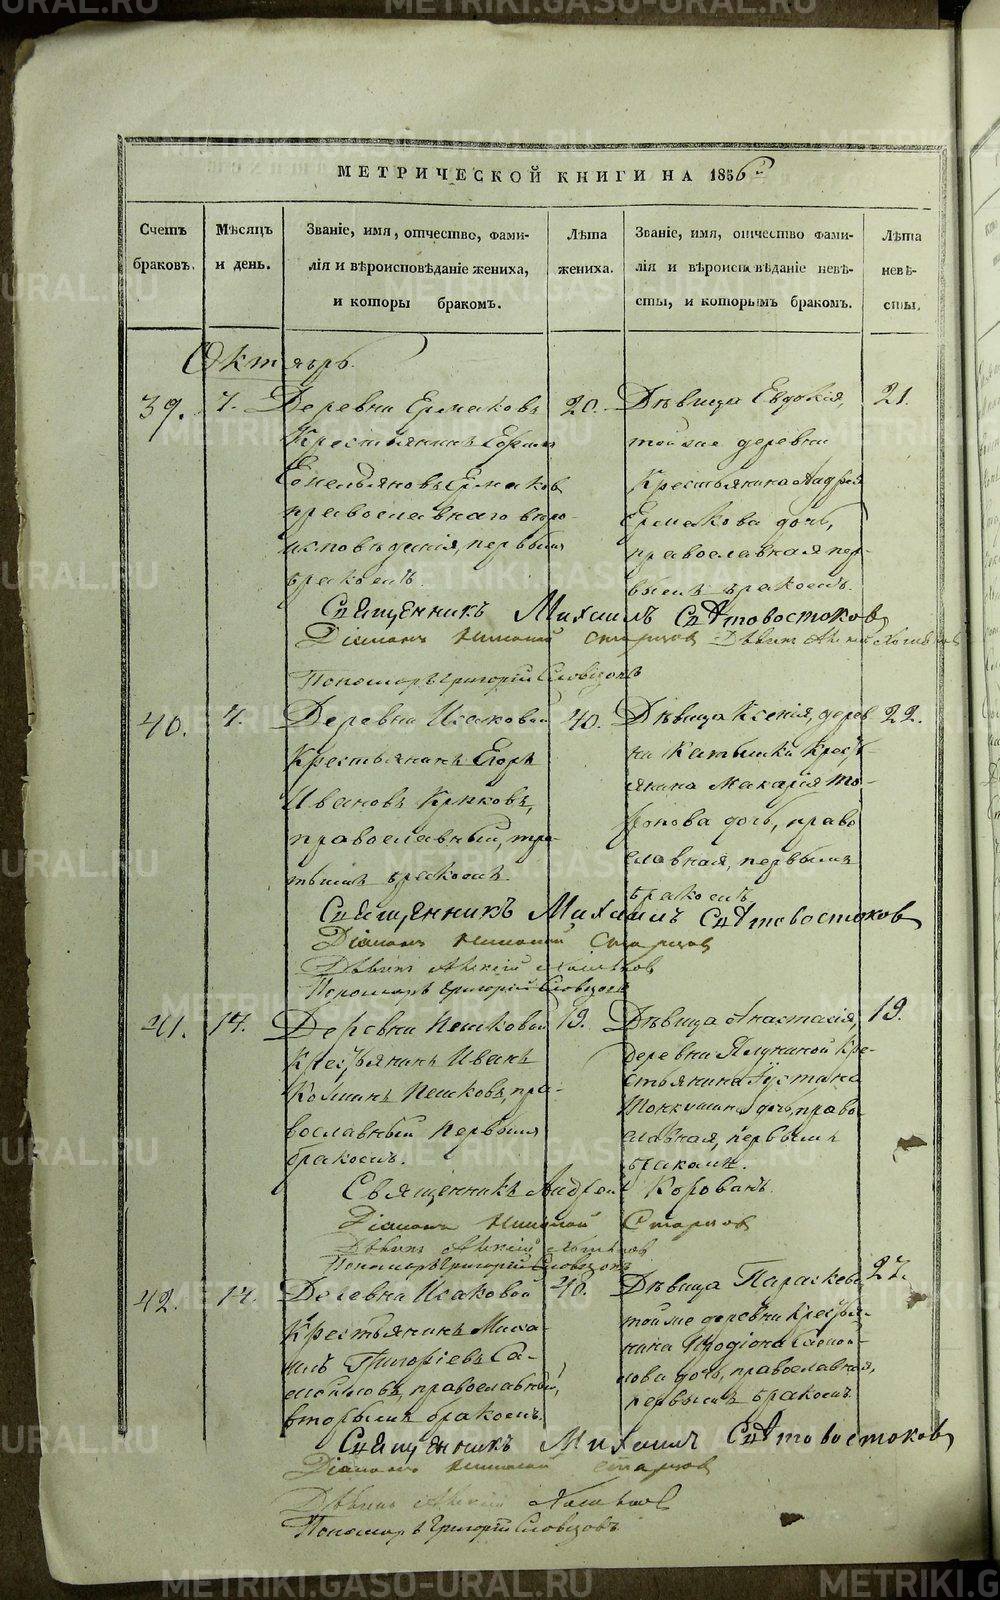 МЕТРИЧЕСКОЙ КНИГИ НА 1856
Счетъ браковъ.
Мѣсяцъ и день.
Званіе, имя, отчество, фами-
лія и вѣроисповѣданіе жениха,
и которы бракомъ.
Лѣта жениха.
Званіе, имя, отчество фами-
лія и вѣроисповѣданіе невѣ-
сты, и которымъ бракомъ.
Лѣта невѣ-
сты.
Октябрь.
39.
7.
Деревни Ермаковъ
Крестьянинъ
Емельяновъ Ермаков
православнаго вѣро-
исповѣданія, первымъ
бракомъ.
20.
Дѣвица Евдокія
той же деревни
Крестьянина Андрея
Ермакова дочь,
православная пер-
вымъ бракомъ.
21.
Священникъ Михаилъ Святовостоков
Діаконъ Николай Старцов
Пономарь Григорій Словцовъ
40.
7.
Деревни Исаковой
Крестьянинъ Егоръ
Ивановъ Крюковъ,
православный, тре-
тьимъ бракомъ.
40.
Дѣвица Ксенія, дерев
ни Крестъ-
янина Макарія
дочь, право
славная, первымъ
бракомъ.
22.
Священникъ Михаилъ Святовостоков
Діаконъ Николай Старцов
Пономарь Григорій Словцовъ
41.
14.
Деревни Пешковой
Крестьянинъ Иванъ
Пешковъ, пра-
вославный первымъ
бракомъ.
19.
Дѣвица Анастасія,
деревни Кре-
стьянина
дочь, право
славная, первымъ
бракомъ.
19.
Священникъ Андрей
Діаконъ Николай Старцов
Пономарь Григорій Словцовъ
42.
14.
Деревни Исаковой
Крестьянинъ Миха-
илъ Григорьевъ Са-
православный,
вторымъ бракомъ.
40.
Дѣвица Параскева
той же деревни Крестья-
нина
дочь, православная,
первымъ бракомъ.
27.
Священникъ Михаилъ Святовостоков
Діаконъ Николай Старцов
Пономарь Григорій Словцовъ
METRIKI.GASO-URAL.RU